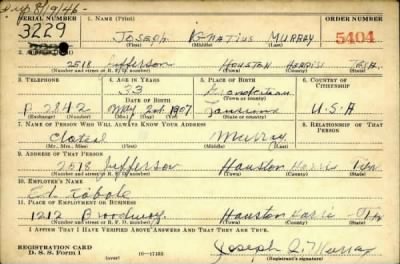 Dup 8/9/46-
SERIAL NUMBER 1. NAME (Print) ORDER NUMBER
3229 JOSEPH IGNATIUS MURRAY 5404
(First) (Middle) (Last)
2. ADDRESS (Print)
2518 Jefferson HOUSTON HARRIS TEXAS
(Number and street or R. F. D. number) (Town) (County) (State)
3. TELEPHONE 4. AGE IN YEARS 5. PLACE OF BIRTH 6. COUNTRY OF CITIZENSHIP
33
DATE OF BIRTH (Town or county)
P 2842 May 2nd 1907 U.S.A
(Exchange) (Number) (Mo.) (Day) (Yr.) (State or country)
7. NAME OF PERSON WHO WILL ALWAYS KNOW YOUR ADDRESS 8. RELATIONSHIP OF THAT PERSON
Murray
(Mr., Mrs., Miss) (First) (Middle) (Last)
9. ADDRESS OF THAT PERSON
2518 Jefferson Houston Harris Tex
(Number and street or R. F. D. number) (Town) (County) (State)
10. EMPLOYER'S NAME
Ed
11. PLACE OF EMPLOYMENT OR BUSINESS
1212 Broadway Houston Harris Tex
(Number and street or R. F. D. number) (Town) (County) (State)
I AFFIRM THAT I HAVE VERIFIED ABOVE ANSWERS AND THAT THEY ARE TRUE.
REGISTRATION CARD
D. S. S. Form 1 Joseph I. Murray
(over) (Registrant's signature)